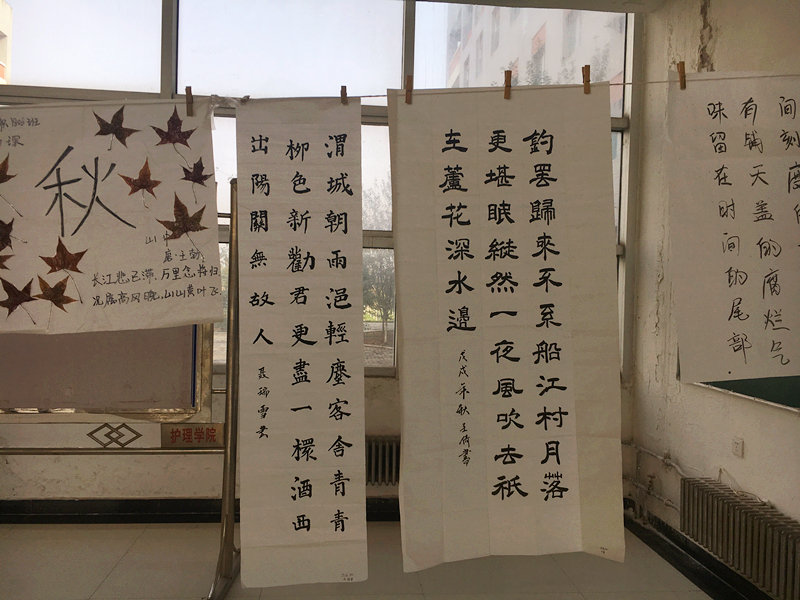 秋
山中
唐·王勃
长江悲已滞,万里念将归
况属高风晚,山山黄叶飞
护理学院
渭城朝雨浥輕塵客舍青青
柳色新勸君更盡一杯酒西
出陽關無故人
釣罷歸來不系船江村月落
更堪眠縱然一夜風吹去衹
在蘆花深水邊
戊戌年秋
间刻磨
有锅天盖的腐烂气
味留在时间的尾部.